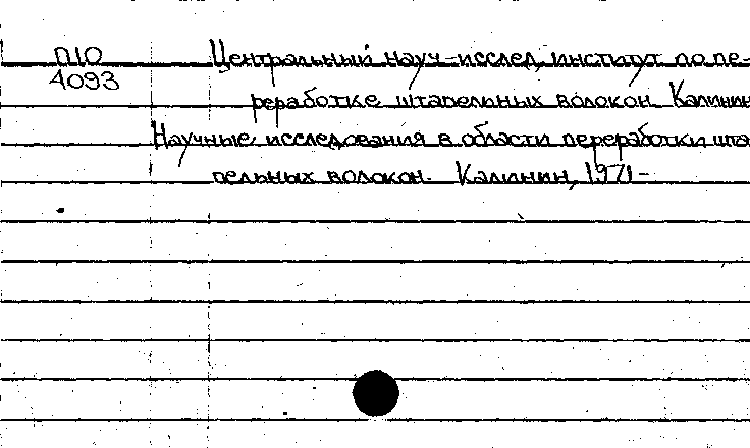 П10 Центральный науч-исслед. институт по пе-
4093
реработке штапельных волокон. Калинин
Научные исследования в области переработки шта
пельных волокон. Калинин, 1971-